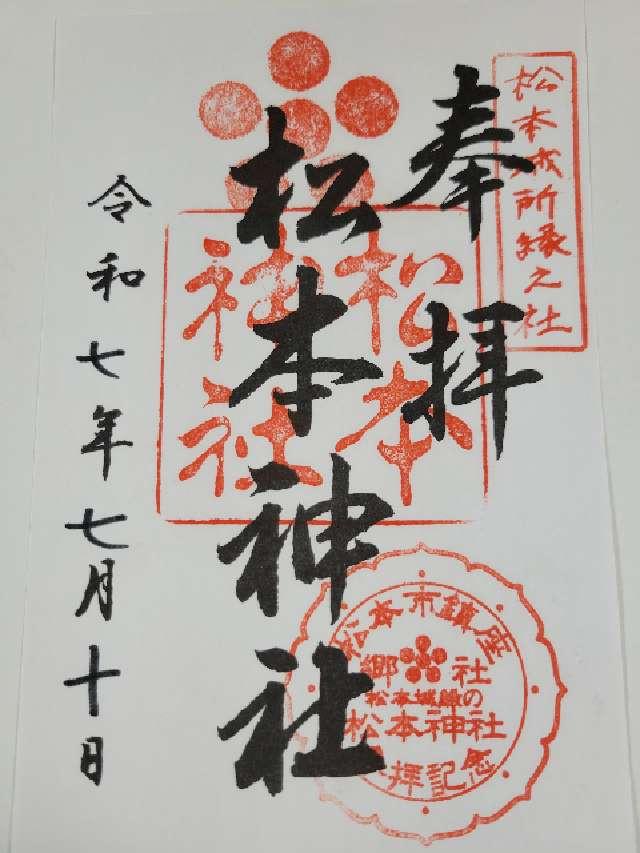 松本城所縁之社
奉拝
松本神社
松本
神社
令和七年七月十日
松本市鎮座
郷社
松本城鎮の
松本神社
参拝記念